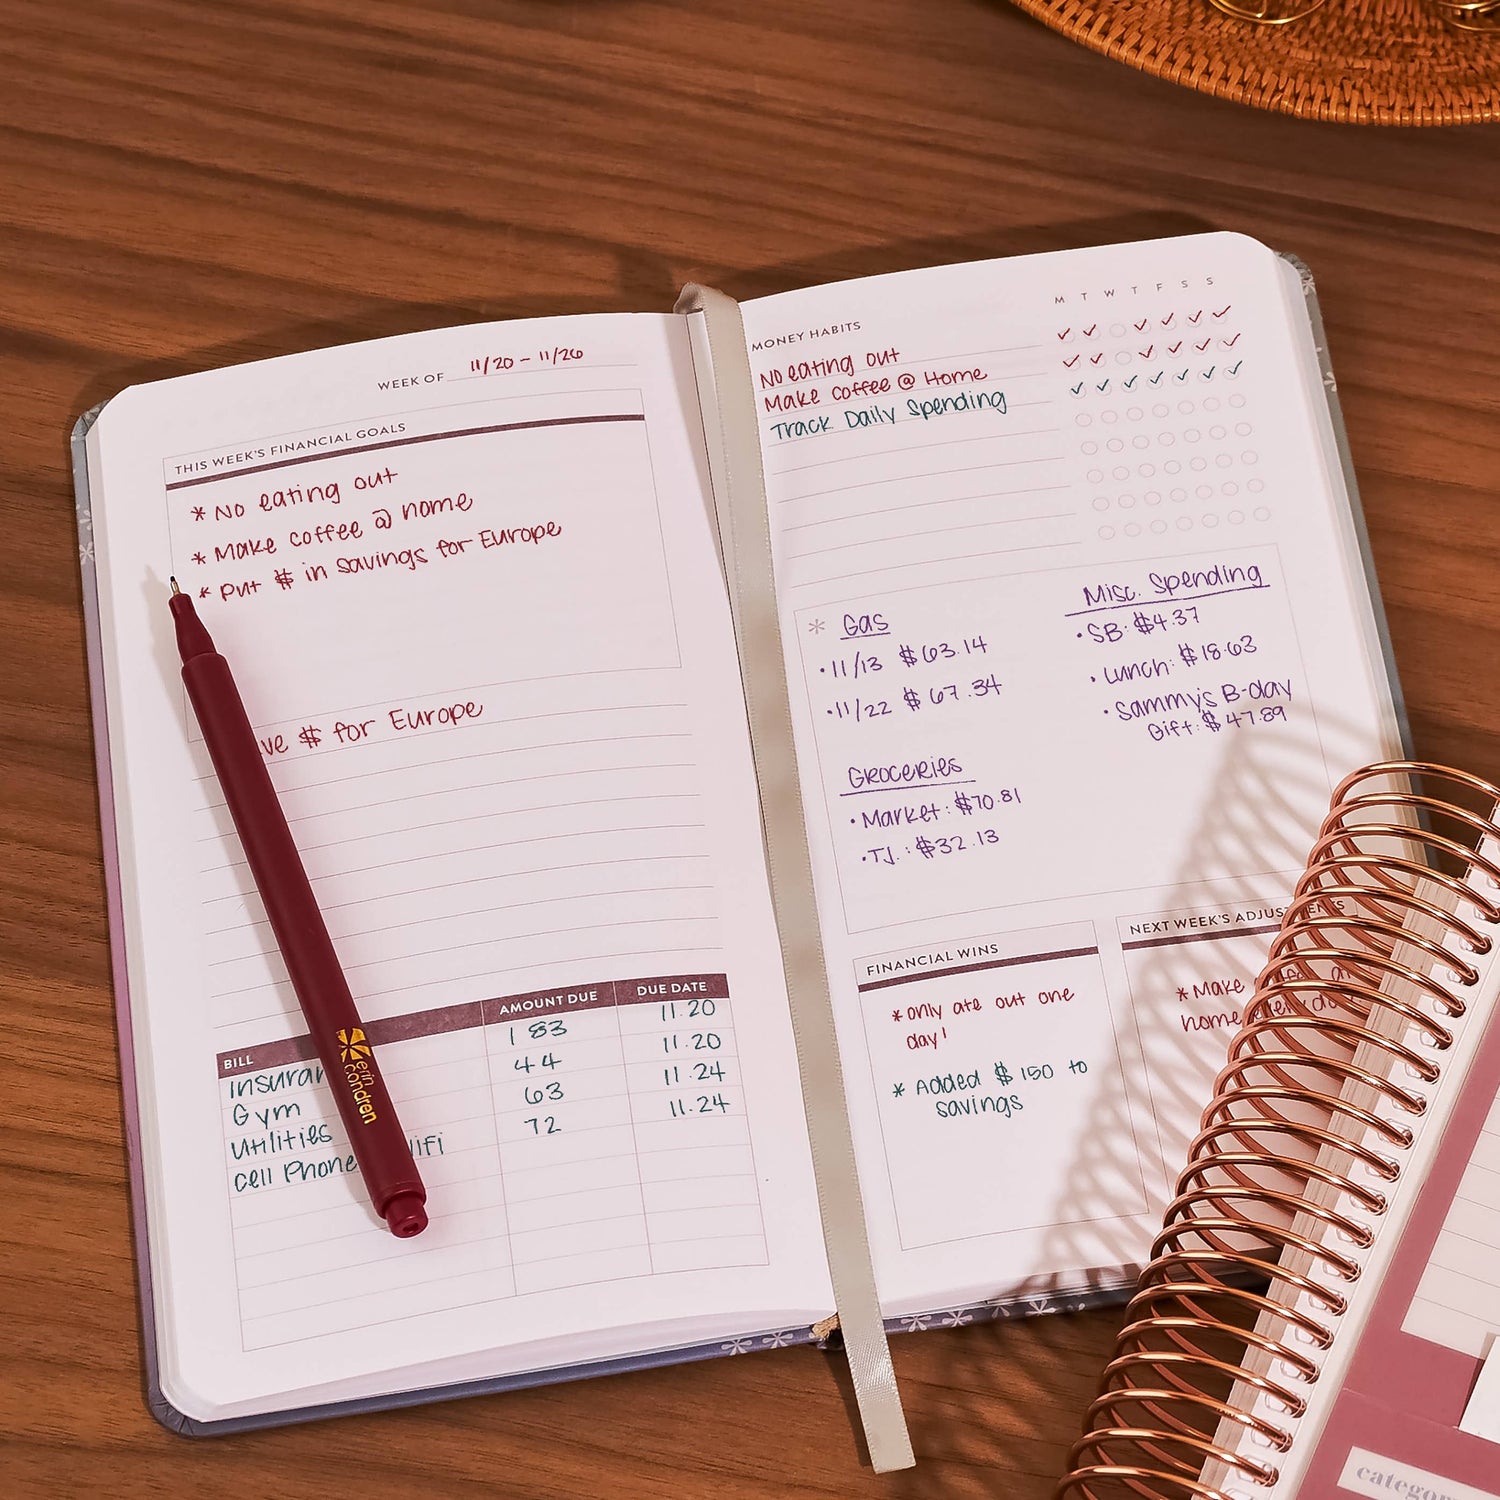 WEEK OF 11/20 - 11/26
THIS WEEK'S FINANCIAL GOALS
* No eating out
* Make coffee @ home
* Put $ in savings for Europe
$ for Europe
BILL AMOUNT DUE DUE DATE
183 11.20
Gym 44 11.20
Utilities 63 11.24
Cell Phone 72 11.24
erin condren
M T W T F S S
MONEY HABITS
No eating out
Make coffee @ Home
Track Daily Spending
* Gas
• 11/13 $63.14
• 11/22 $67.34
Groceries
• Market: $70.81
• TJ.: $32.13
Misc. Spending
• SB: $4.37
• Lunch: $18.63
• Sammy's B-day
Gift: $47.89
FINANCIAL WINS
* only ate out one
day!
* Added $150 to
savings
NEXT WEEK'S ADJUSTMENTS
* Make
home